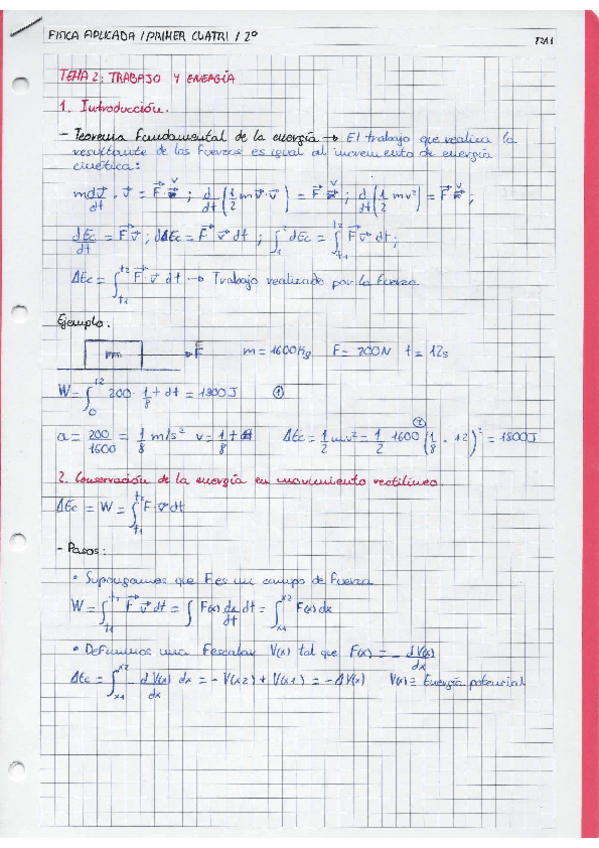 FISICA APLICADA / PRIMER CUATRI / 2º
TEMA 2: TRABAJO Y ENERGÍA
1. Introducción.
- Teorema fundamental de la energía → El trabajo que realiza la
resultante de las fuerzas es igual al incremento de energía
cinética:
m dv⃗/dt · v⃗ = F⃗ · v⃗ ; d/dt (1/2 m v⃗ · v⃗) = F⃗ · v⃗ ; d/dt (1/2 mv²) = F⃗ · v⃗ ;
dEc/dt = F⃗ v⃗ ; dEc = F⃗ v⃗ dt ; ∫₁² dEc = ∫t1^t2 F⃗ v⃗ dt ;
ΔEc = ∫t1^t2 F⃗ · v⃗ dt → Trabajo realizado por la fuerza
Ejemplo:
m F⃗ m = 1600Kg F = 200N t = 12s
W = ∫0^12 200 · 1/8 t dt = 1800J ①
a = 200/1600 = 1/8 m/s² v = 1/8 t ΔEc = 1/2 mv² = 1/2 1600 (1/8 · 12)² = 1800J ②
2. Conservación de la energía en movimiento rectilíneo.
ΔEc = W = ∫t1^t2 F · v⃗ dt
- Pasos:
• Supongamos que F es un campo de fuerza
W = ∫t1^t2 F⃗ v⃗ dt = ∫ F(x) dx/dt dt = ∫x1^x2 F(x) dx
• Definimos una F escalar V(x) tal que F(x) = - dV(x)/dx
ΔEc = ∫x1^x2 - dV(x)/dx dx = - V(x2) + V(x1) = - ΔV(x) V(x) = Energía potencial